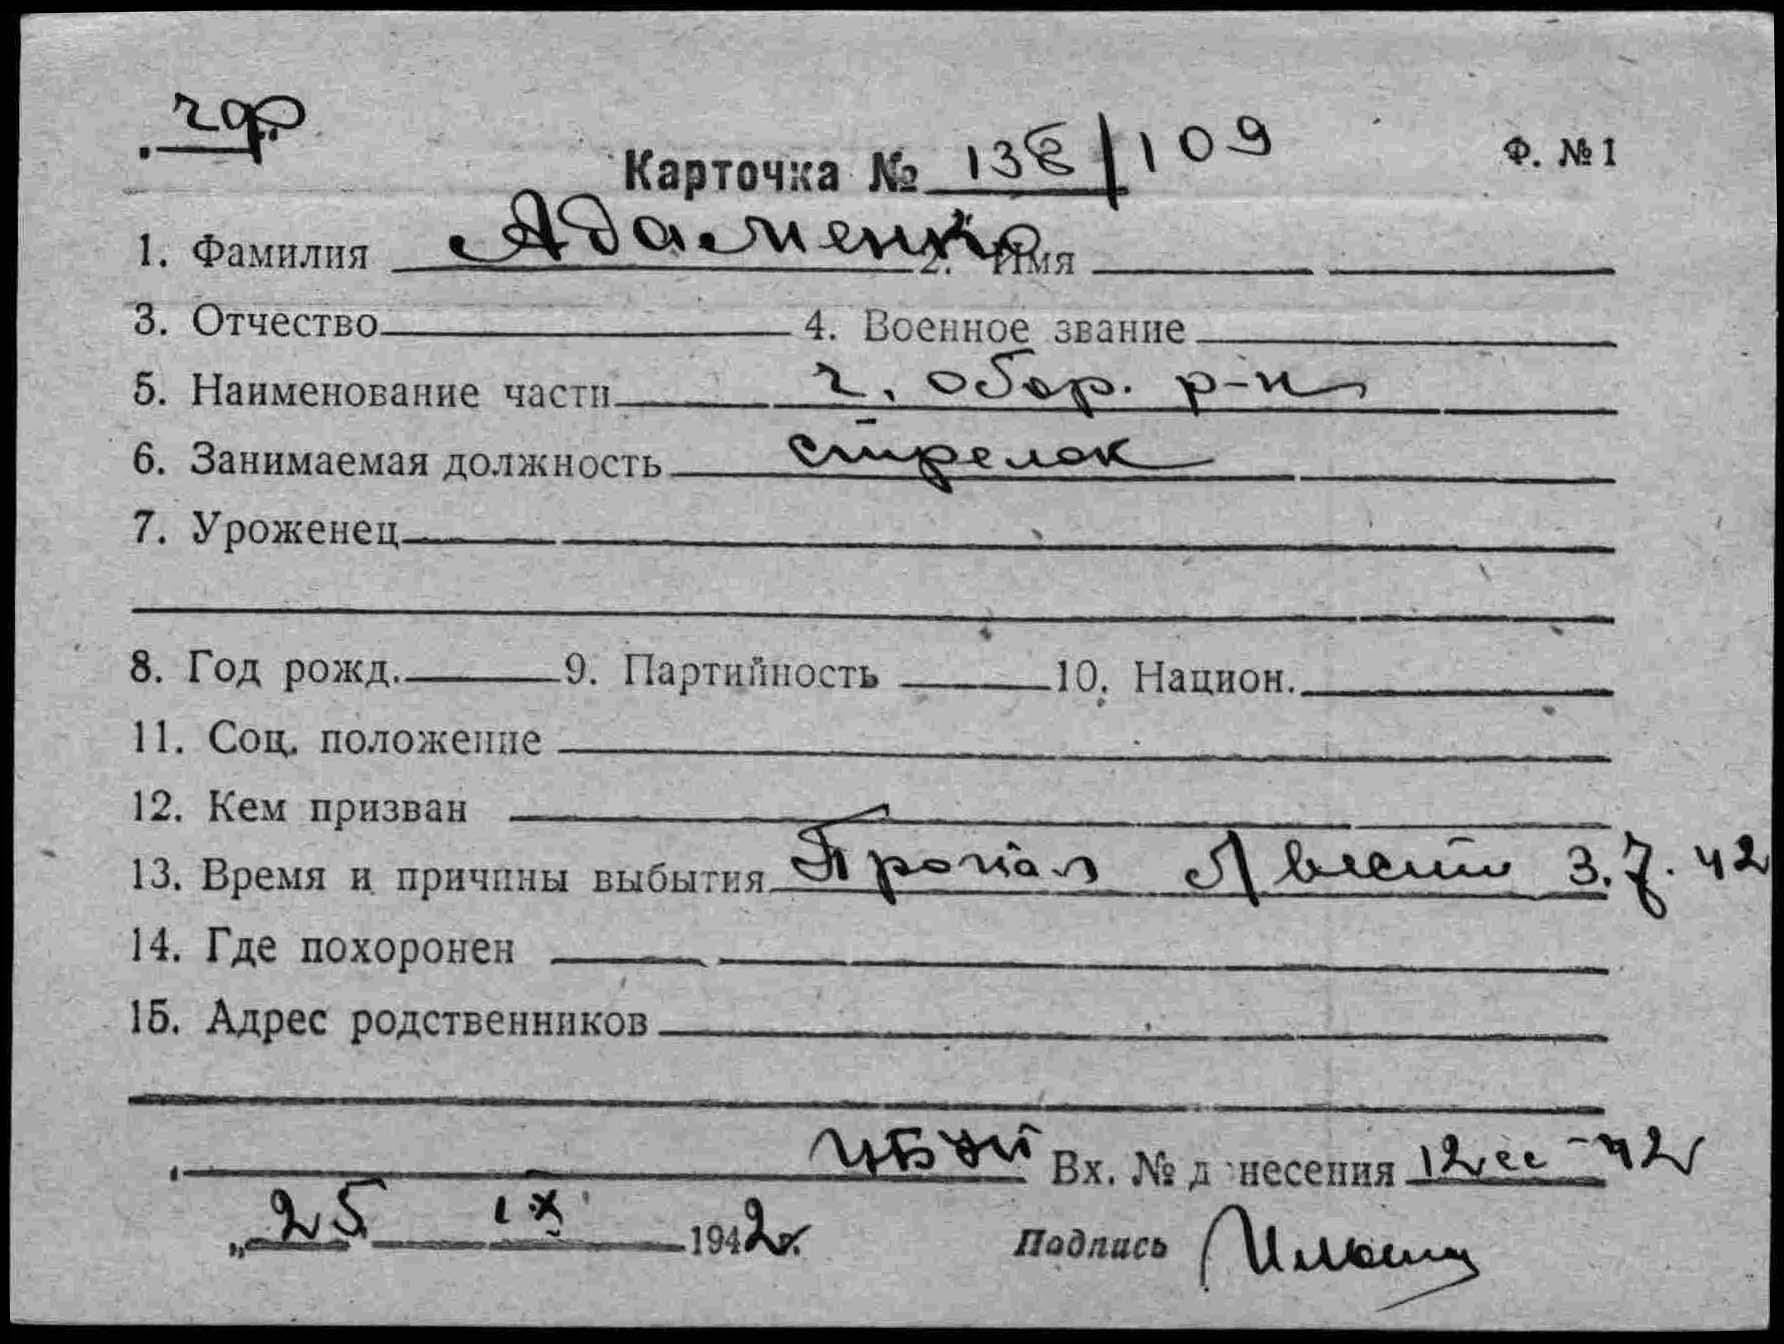 чф
Карточка № 138/109 Ф. № 1
1. Фамилия Адаменко 2. Имя
3. Отчество 4. Военное звание
5. Наименование части г. обор. р-н
6. Занимаемая должность стрелок
7. Уроженец
8. Год рожд. 9. Партийность 10. Национ.
11. Соц. положение
12. Кем призван
13. Время и причины выбытия Пропал Авести 3.7.42
14. Где похоронен
15. Адрес родственников
Вх. № донесения 12сс-42
„25 IX 1942г.
Подпись